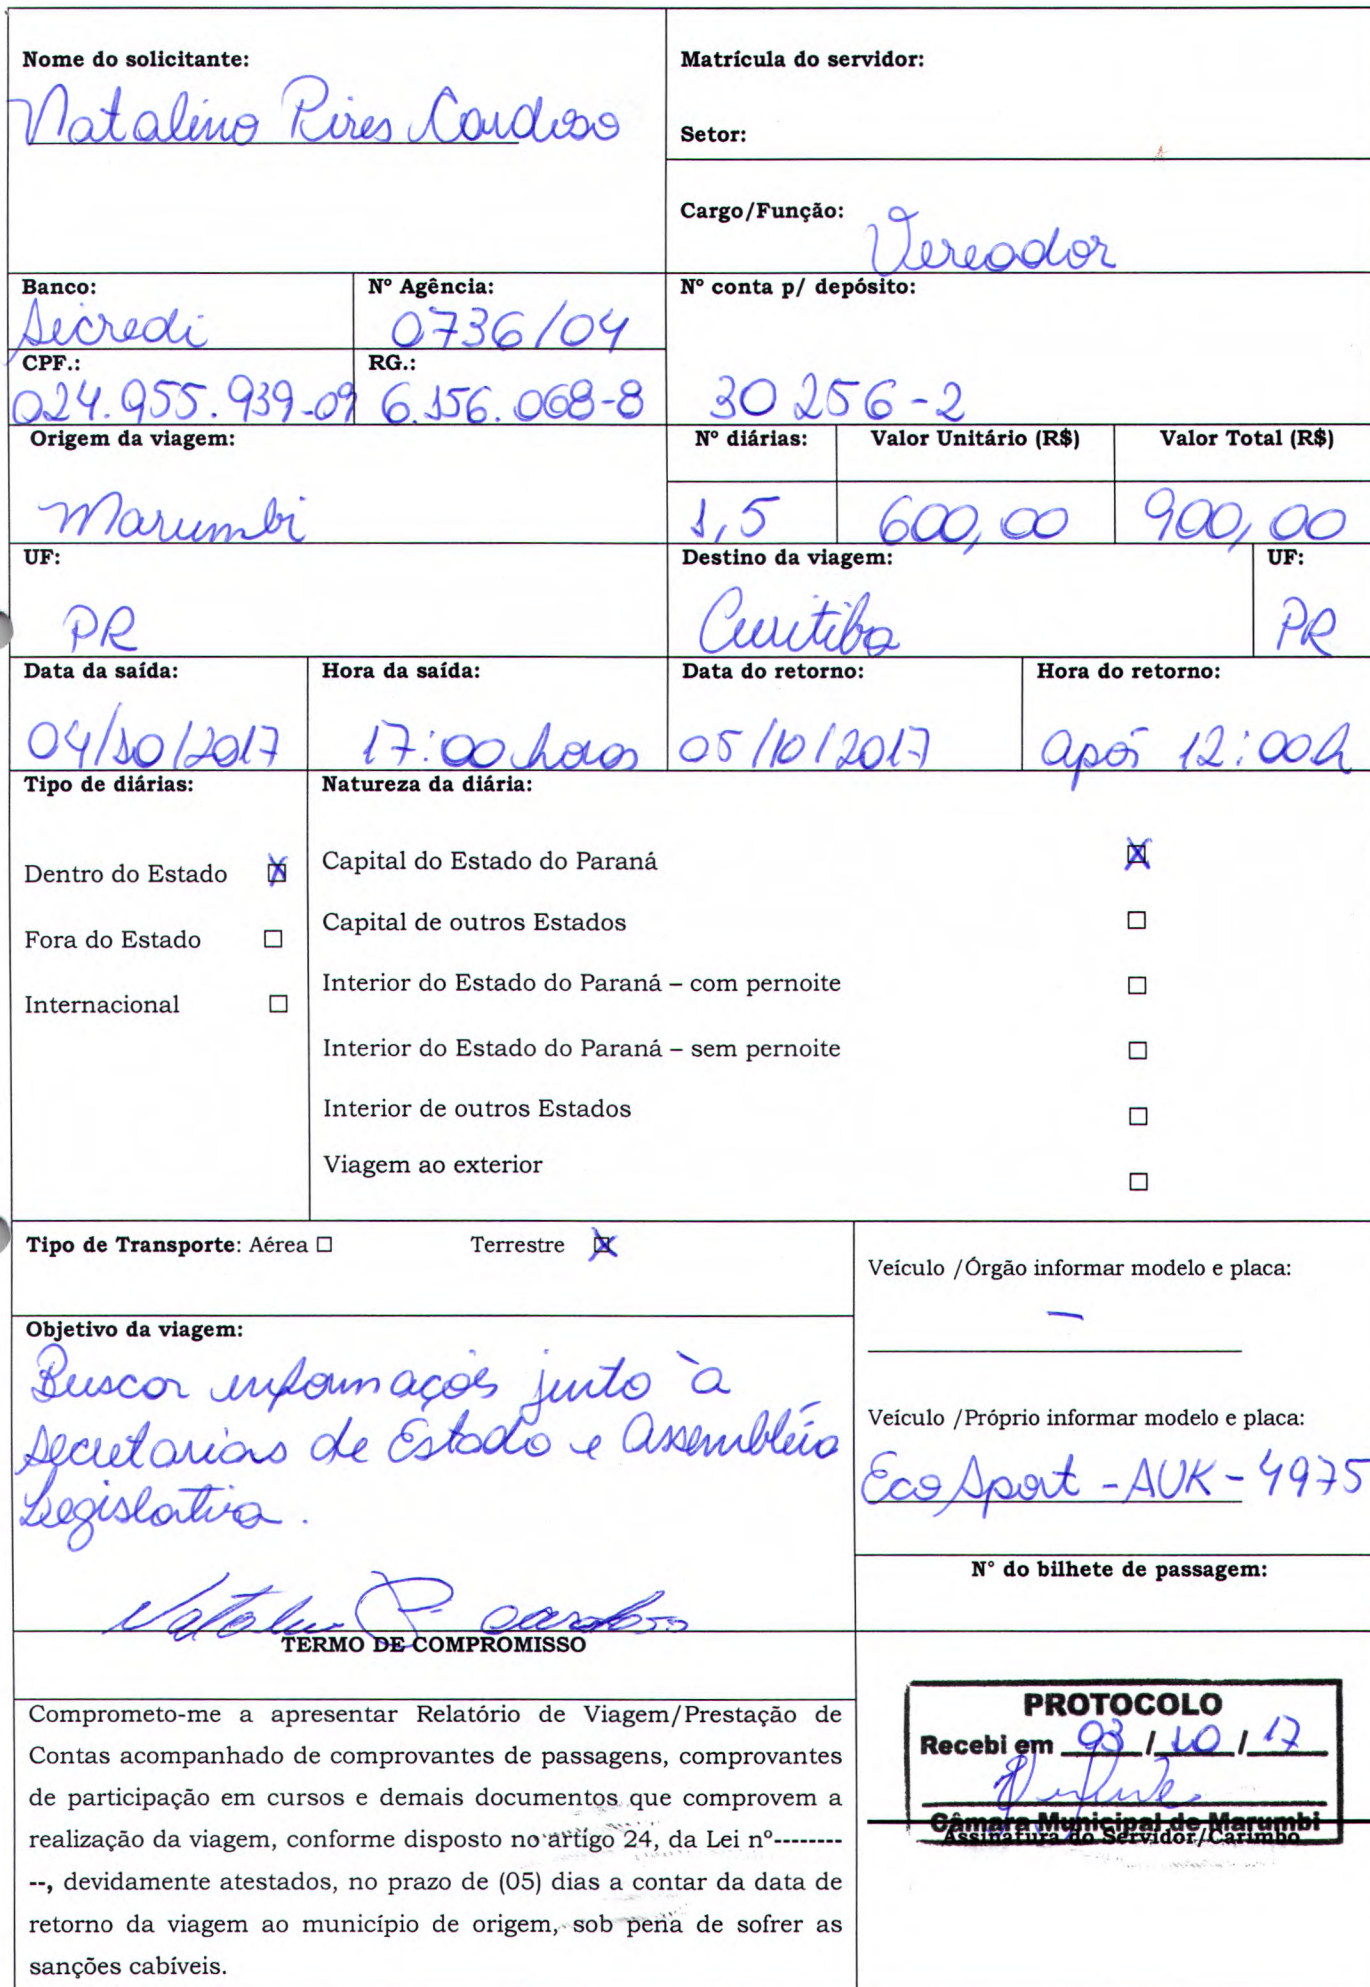 Nome do solicitante:
Natalino Pires Cardoso
Matrícula do servidor:
Setor:
Cargo/Função:
Vereador
Banco:
Sicredi
Nº Agência:
0736/04
Nº conta p/ depósito:
30256-2
CPF.:
024.955.939-09
RG.:
6.156.068-8
Origem da viagem:
Marumbi
Nº diárias:
1,5
Valor Unitário (R$)
600,00
Valor Total (R$)
900,00
UF:
PR
Destino da viagem:
Curitiba
UF:
PR
Data da saída:
04/10/2017
Hora da saída:
17:00 horas
Data do retorno:
05/10/2017
Hora do retorno:
após 12:00h
Tipo de diárias:
Dentro do Estado ☒
Fora do Estado ☐
Internacional ☐
Natureza da diária:
Capital do Estado do Paraná ☒
Capital de outros Estados ☐
Interior do Estado do Paraná – com pernoite ☐
Interior do Estado do Paraná – sem pernoite ☐
Interior de outros Estados ☐
Viagem ao exterior ☐
Tipo de Transporte: Aérea ☐ Terrestre ☒
Veículo /Órgão informar modelo e placa:
–
Objetivo da viagem:
Buscar informações junto à
secretarias de Estado e Assembléia
Legislativa.
Natalino P. Cardoso
Veículo /Próprio informar modelo e placa:
EcoSport - AUK - 4975
N° do bilhete de passagem:
TERMO DE COMPROMISSO
Comprometo-me a apresentar Relatório de Viagem/Prestação de
Contas acompanhado de comprovantes de passagens, comprovantes
de participação em cursos e demais documentos que comprovem a
realização da viagem, conforme disposto no artigo 24, da Lei nº--------
--, devidamente atestados, no prazo de (05) dias a contar da data de
retorno da viagem ao município de origem, sob pena de sofrer as
sanções cabíveis.
PROTOCOLO
Recebi em 03/10/17
Câmara Municipal de Marumbi
Assinatura do Servidor/Carimbo